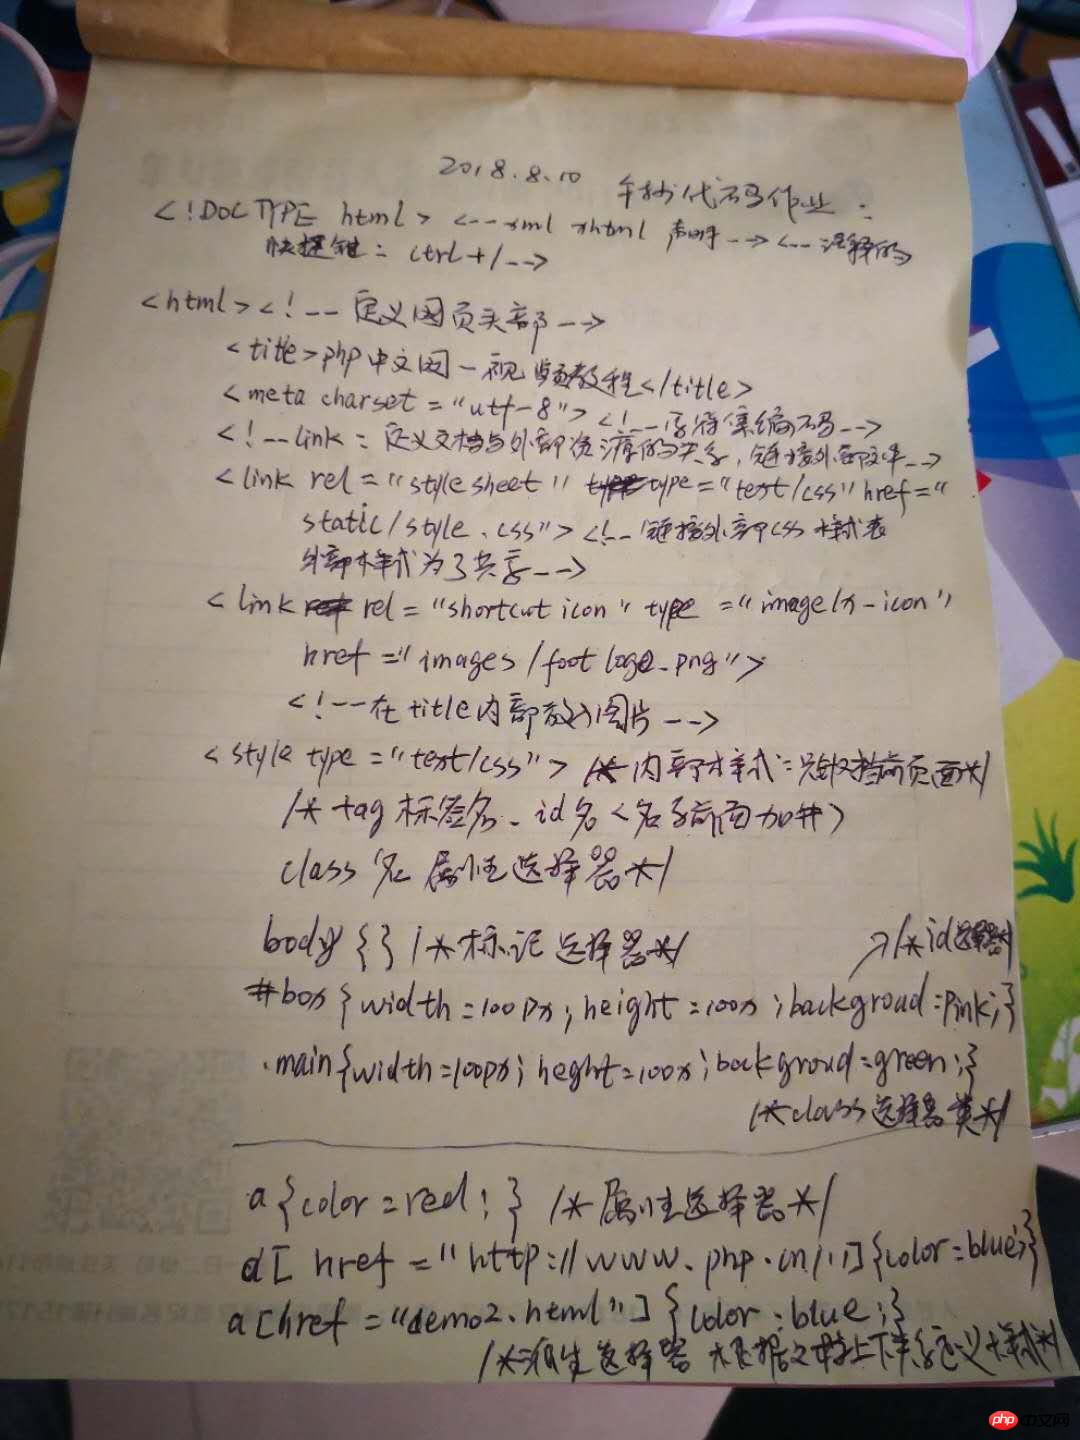 2018.8.10 手抄代码作业：
<!DOCTYPE html> <--xml xhtml 声明--> <--注释的
快捷键: ctrl+/-->
<html><!--定义网页头部-->
<title>php中文网-视频教程</title>
<meta charset="utf-8"> <!--字符集编码-->
<!--link: 定义文档与外部资源的关系,链接外部文件-->
<link rel="stylesheet" type="text/css" href="
static/style.css"> <!--链接外部css样式表
外部样式为了共享-->
<link rel="shortcut icon" type="image/x-icon"
href="images/footlogo.png">
<!--在title内部放入图片-->
<style type="text/css"> /*内部样式:只针对当前页面*/
/* tag 标签名、id名<名字前面加#>
class名 属性选择器*/
body{} /*标记选择器*/
/*id选择器*/
#box{width=100px; height=100x; backgroud=pink;}
.main{width=100px; heght=100x; backgroud=green;}
/*class选择器 类*/
a{color=red;} /*属性选择器*/
a[href="http://www.php.cn/"]{color=blue;}
a[href="demo2.html"]{color:blue;}
/*派生选择器 根据文档上下关系定义样式*/
php 中文网